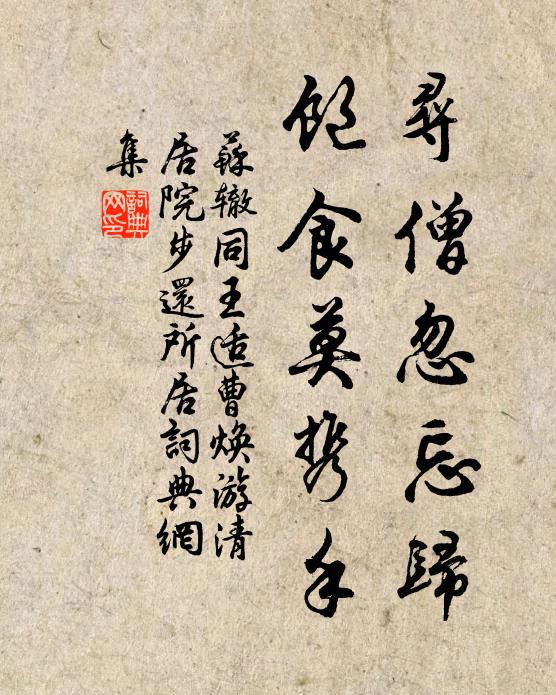 尋僧忽忘歸
飽食莫携手
蘇辙同王适曹焕游清
居院步還所居詞典網
集
詞典
网印